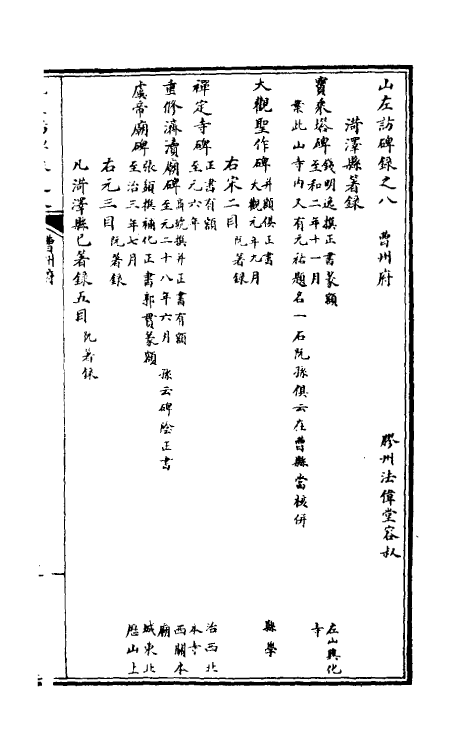 山左訪碑錄之八　曹州府　膠州法偉堂容叔
菏澤縣著錄
寶乘塔碑　錢明逸撰正書篆額　至和二年十一月　左山興化寺
案此山寺內又有元祐題名一石阮孫俱云在曹縣當核併
大觀聖作碑　并額俱正書　大觀元年九月　縣學
右宋二目　阮著錄
禪定寺碑　正書有額　至元六年　治西北本寺
重修濟瀆廟碑　撰并正書有額　至元二十八年六月　孫云碑陰正書　西關本廟
虞帝廟碑　張頴撰補化正書郭貫篆額　至治三年七月　城東北歷山上
右元三目　阮著錄
凡菏澤縣已著錄五目　阮著錄
曹州府